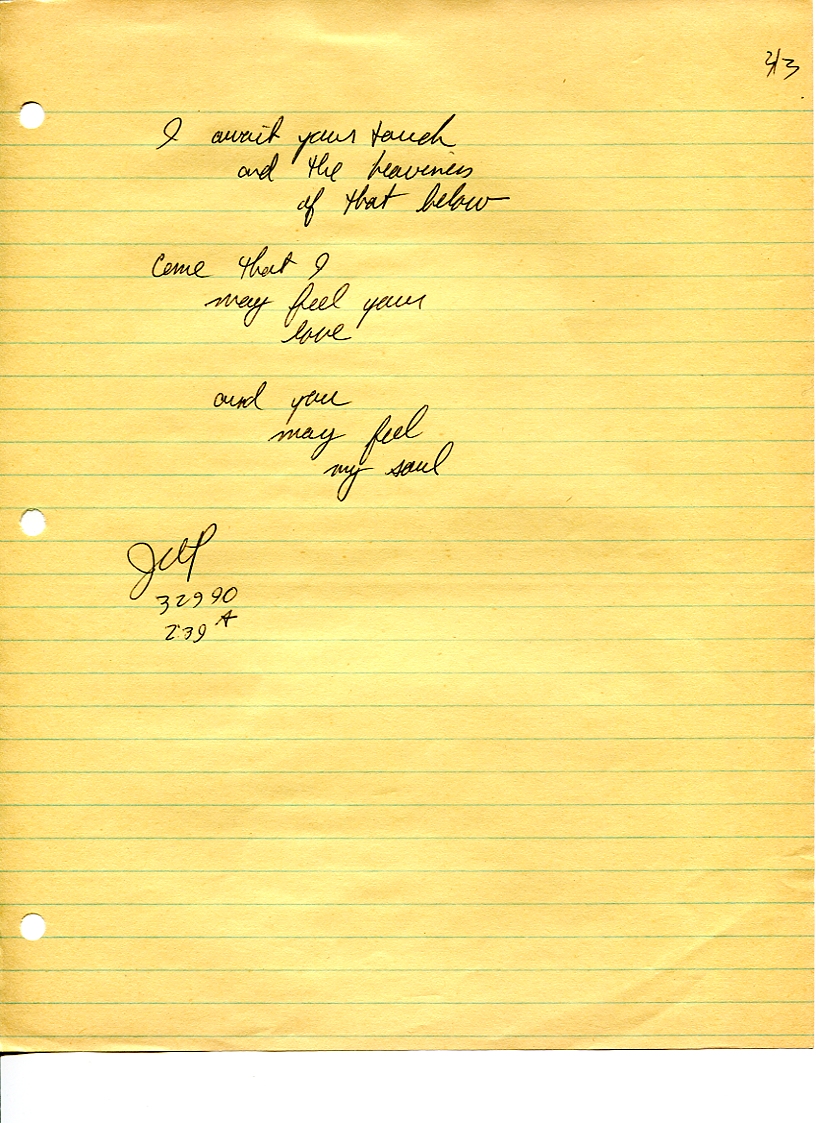 2/3
I await your touch
and the heaviness
of that below
Come that I
may feel your
love
and you
may feel
my soul
32990
2:39 A